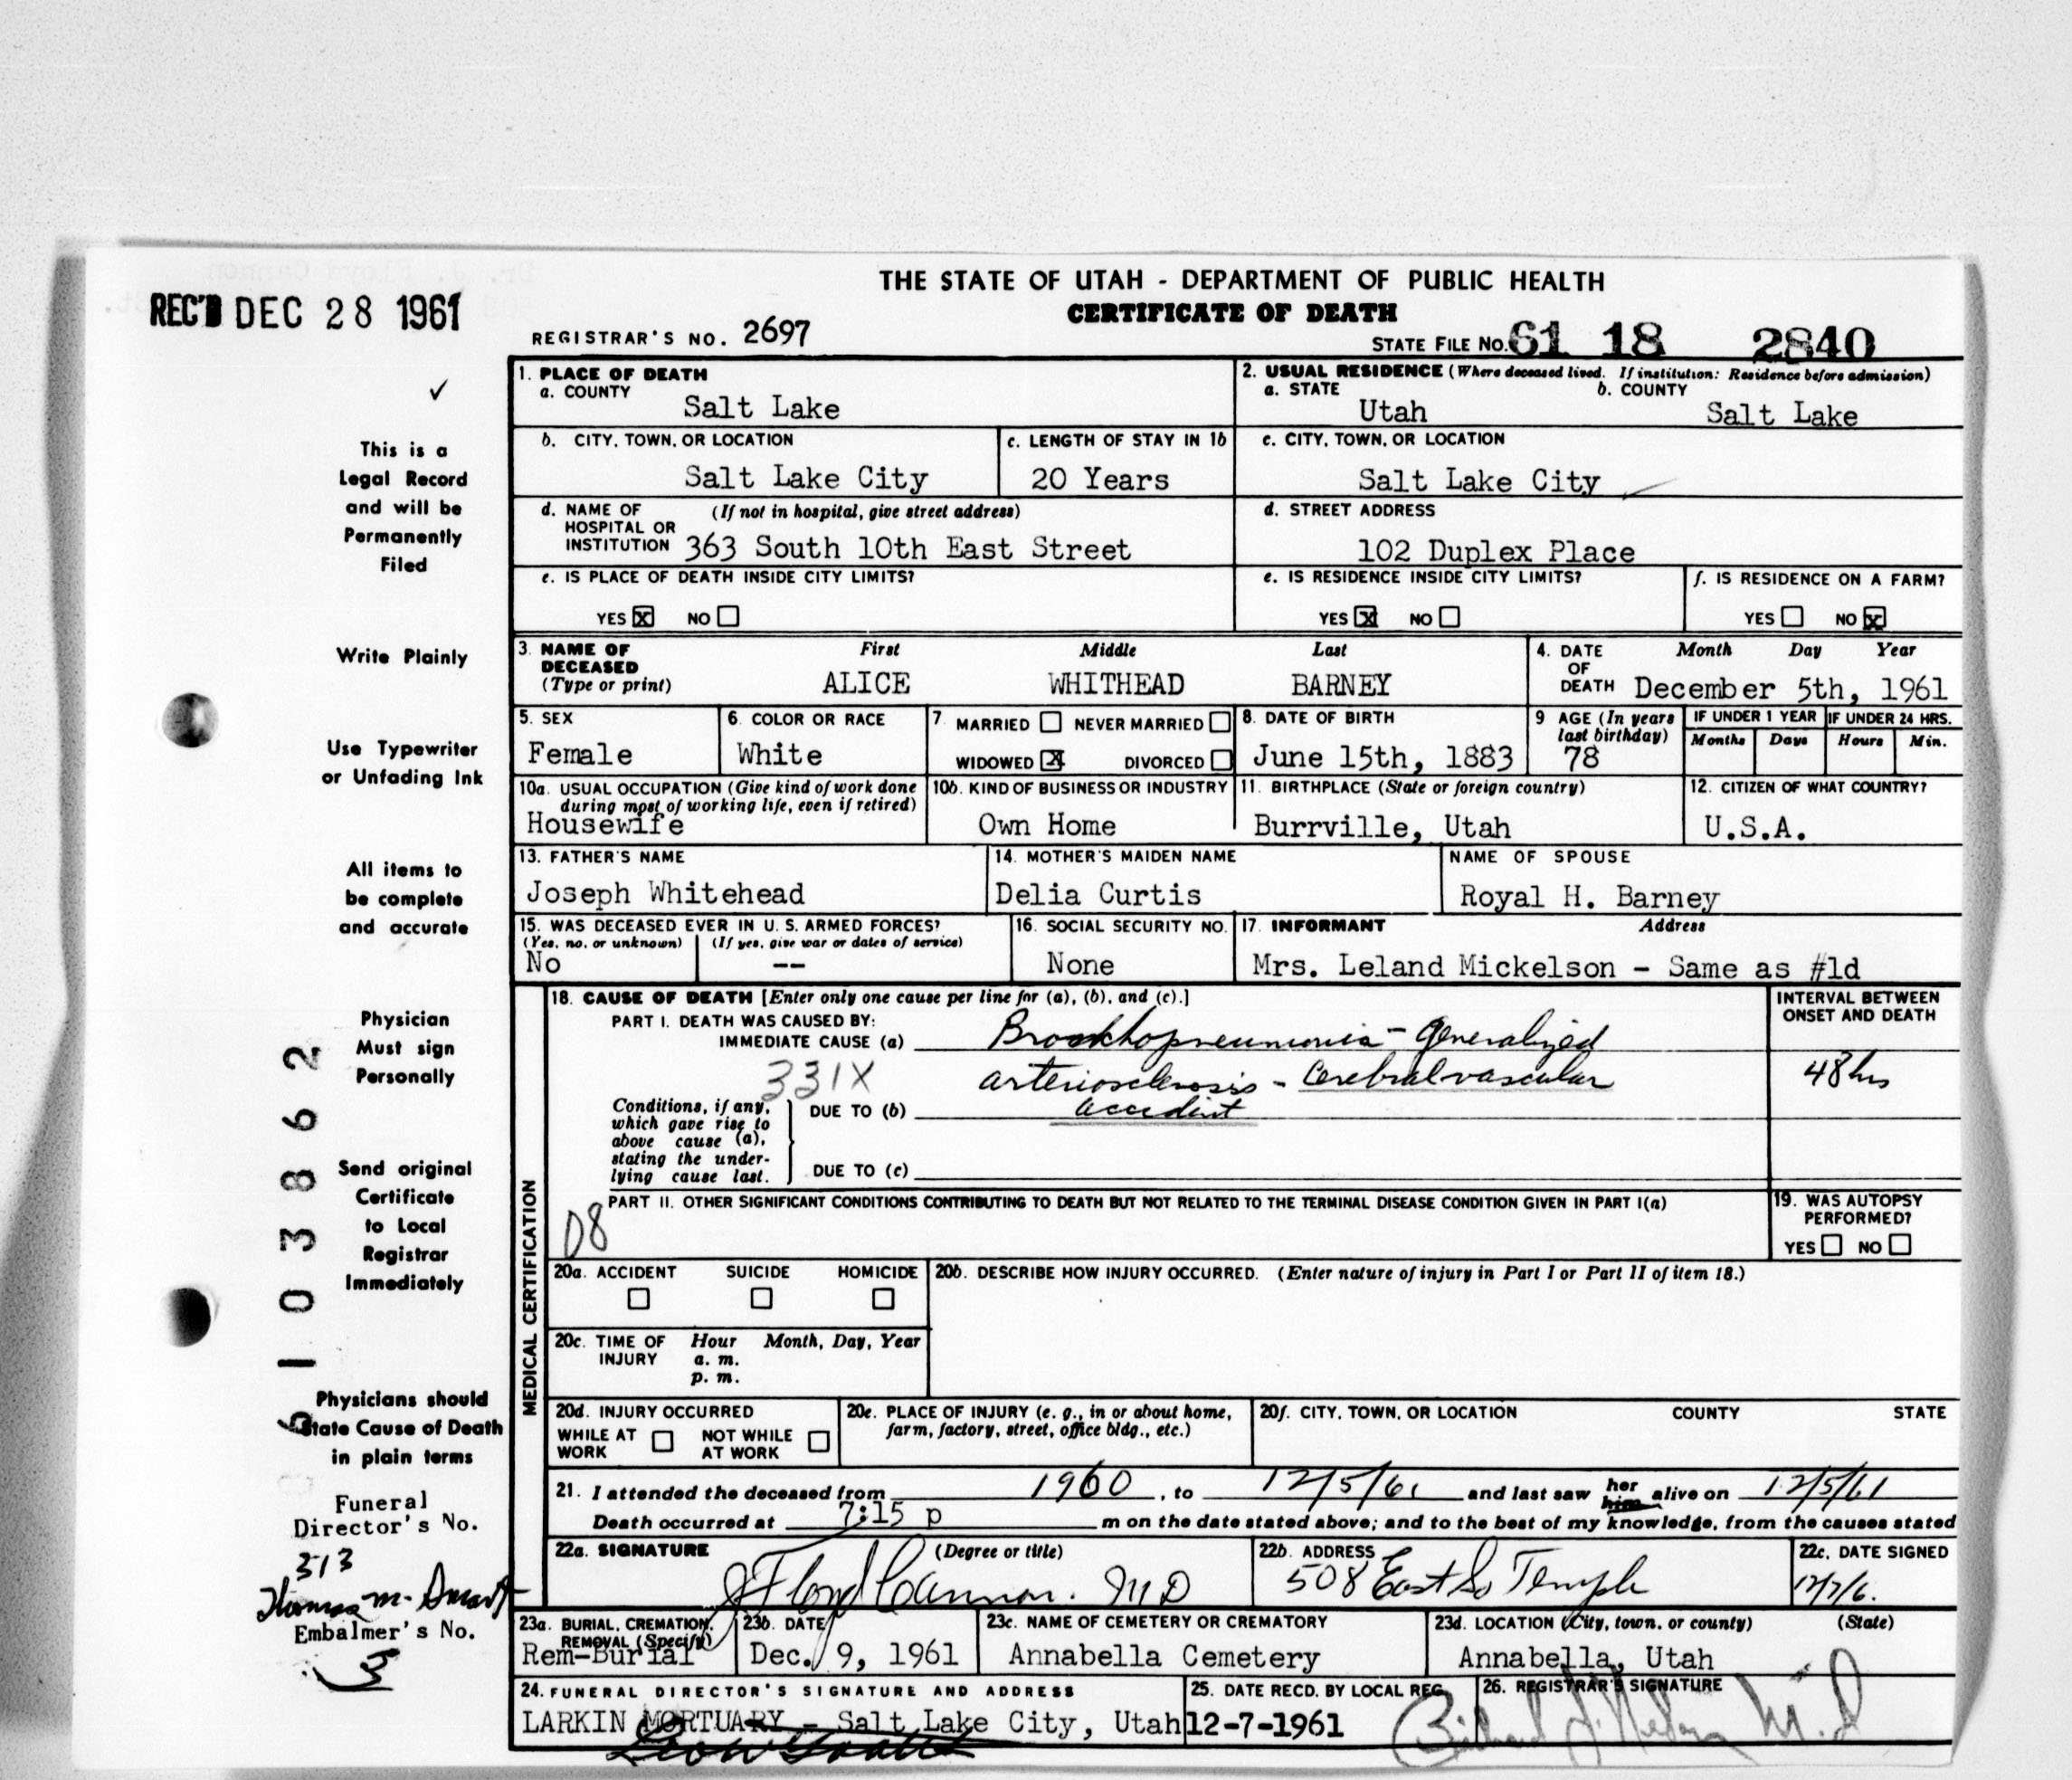 THE STATE OF UTAH - DEPARTMENT OF PUBLIC HEALTH
CERTIFICATE OF DEATH
REC'D DEC 28 1961
REGISTRAR'S NO. 2697
STATE FILE NO. 61 18 2840
✓
This is a
Legal Record
and will be
Permanently
Filed
Write Plainly
Use Typewriter
or Unfading Ink
All items to
be complete
and accurate
Physician
Must sign
Personally
Send original
Certificate
to Local
Registrar
Immediately
Physicians should
State Cause of Death
in plain terms
Funeral
Director's No.
313
Thomas M.
Embalmer's No.
103862
1. PLACE OF DEATH
a. COUNTY
Salt Lake
2. USUAL RESIDENCE (Where deceased lived. If institution: Residence before admission)
a. STATE b. COUNTY
Utah Salt Lake
b. CITY, TOWN, OR LOCATION
Salt Lake City
c. LENGTH OF STAY IN 1b
20 Years
c. CITY, TOWN, OR LOCATION
Salt Lake City
d. NAME OF (If not in hospital, give street address)
HOSPITAL OR
INSTITUTION 363 South 10th East Street
d. STREET ADDRESS
102 Duplex Place
e. IS PLACE OF DEATH INSIDE CITY LIMITS?
YES X NO
e. IS RESIDENCE INSIDE CITY LIMITS?
YES X NO
f. IS RESIDENCE ON A FARM?
YES NO X
3. NAME OF First Middle Last
DECEASED
(Type or print) ALICE WHITHEAD BARNEY
4. DATE Month Day Year
OF
DEATH December 5th, 1961
5. SEX
Female
6. COLOR OR RACE
White
7. MARRIED NEVER MARRIED
WIDOWED X DIVORCED
8. DATE OF BIRTH
June 15th, 1883
9 AGE (In years
last birthday)
78
IF UNDER 1 YEAR IF UNDER 24 HRS.
Months Days Hours Min.
10a. USUAL OCCUPATION (Give kind of work done
during most of working life, even if retired)
Housewife
10b. KIND OF BUSINESS OR INDUSTRY
Own Home
11. BIRTHPLACE (State or foreign country)
Burrville, Utah
12. CITIZEN OF WHAT COUNTRY?
U.S.A.
13. FATHER'S NAME
Joseph Whitehead
14. MOTHER'S MAIDEN NAME
Delia Curtis
NAME OF SPOUSE
Royal H. Barney
15. WAS DECEASED EVER IN U.S. ARMED FORCES?
(Yes, no, or unknown) (If yes, give war or dates of service)
No --
16. SOCIAL SECURITY NO.
None
17. INFORMANT Address
Mrs. Leland Mickelson - Same as #1d
MEDICAL CERTIFICATION
18. CAUSE OF DEATH [Enter only one cause per line for (a), (b), and (c).]
INTERVAL BETWEEN
ONSET AND DEATH
PART I. DEATH WAS CAUSED BY:
IMMEDIATE CAUSE (a) Bronchopneumonia - Generalized
331X arteriosclerosis - Cerebral vascular 48 hrs
Conditions, if any,
which gave rise to
above cause (a),
stating the under-
lying cause last.
DUE TO (b) accident
DUE TO (c)
PART II. OTHER SIGNIFICANT CONDITIONS CONTRIBUTING TO DEATH BUT NOT RELATED TO THE TERMINAL DISEASE CONDITION GIVEN IN PART I(a)
08
19. WAS AUTOPSY
PERFORMED?
YES NO
20a. ACCIDENT SUICIDE HOMICIDE
20b. DESCRIBE HOW INJURY OCCURRED. (Enter nature of injury in Part I or Part II of item 18.)
20c. TIME OF Hour Month, Day, Year
INJURY a. m.
p. m.
20d. INJURY OCCURRED
WHILE AT NOT WHILE
WORK AT WORK
20e. PLACE OF INJURY (e. g., in or about home,
farm, factory, street, office bldg., etc.)
20f. CITY, TOWN, OR LOCATION COUNTY STATE
21. I attended the deceased from 1960, to 12/5/61 and last saw her him alive on 12/5/61
Death occurred at 7:15 p m on the date stated above; and to the best of my knowledge, from the causes stated
22a. SIGNATURE (Degree or title)
J Floyd Cannon. MD
22b. ADDRESS
508 East So Temple
22c. DATE SIGNED
12/7/6.
23a. BURIAL, CREMATION,
REMOVAL (Specify)
Rem-Burial
23b. DATE
Dec. 9, 1961
23c. NAME OF CEMETERY OR CREMATORY
Annabella Cemetery
23d. LOCATION (City, town, or county) (State)
Annabella, Utah
24. FUNERAL DIRECTOR'S SIGNATURE AND ADDRESS
LARKIN MORTUARY - Salt Lake City, Utah
25. DATE RECD. BY LOCAL REG.
12-7-1961
26. REGISTRAR'S SIGNATURE
M.D